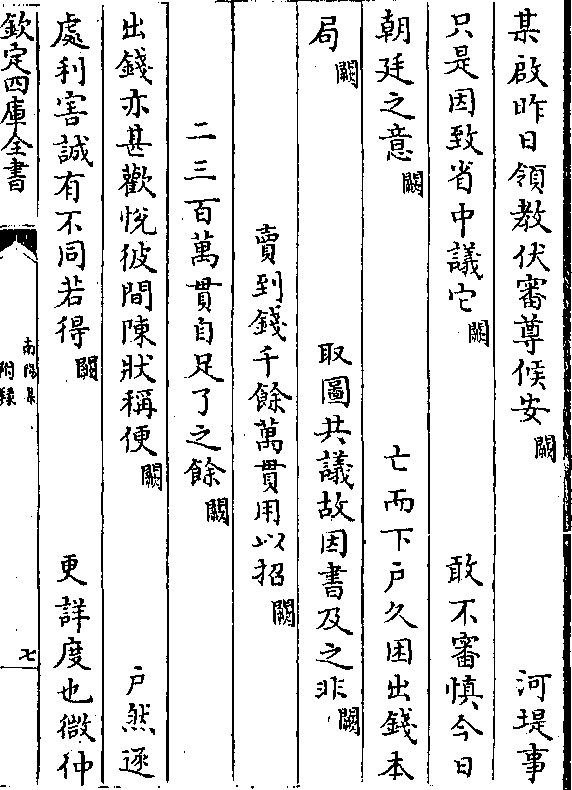 某啟昨日領教伏審尊候安闕河堤事
只是因致省中議它闕敢不審慎今日
朝廷之意闕亡而下戸久困出錢本
局闕取圖共議故因書及之非闕
賣到錢千餘萬貫用以招闕
二三百萬貫自足了之餘闕
出錢亦甚歡悅彼間陳狀稱便闕戸然逐
處利害誠有不同若得闕更詳度也微仲
欽定四庫全書
南陽集
附録
七